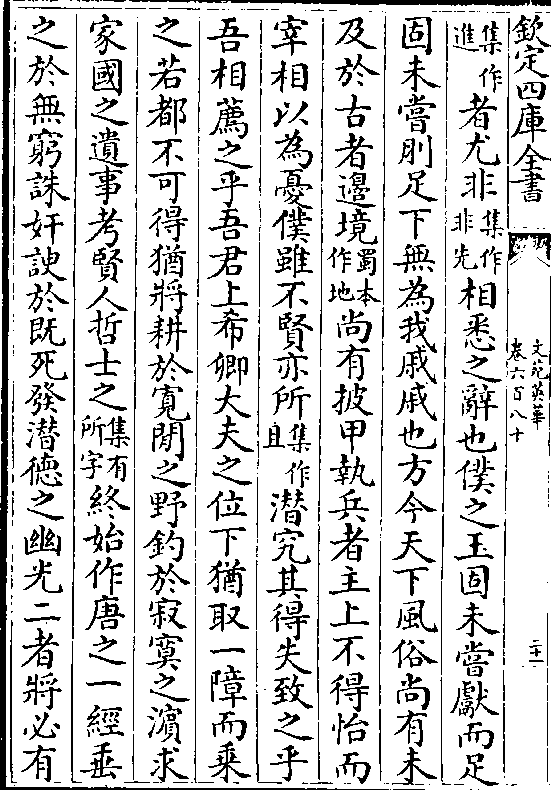 欽定四庫全書
文苑英華
卷六百八十
二十一
進集作者尤非集作非先相悉之辭也僕之玉固未嘗獻而足
固未嘗刖足下無為我戚戚也方今天下風俗尚有未
及於古者邉境蜀本作地尚有披甲執兵者主上不得怡而
宰相以為憂僕雖不賢亦所集作且潜究其得失致之乎
吾相薦之乎吾君上希卿大夫之位下猶取一障而乗
之若都不可得猶將耕於寛閒之野釣於寂寞之濵求
家國之遺事考賢人哲士之集有所字終始作唐之一經垂
之於無窮誅奸諛於既死發潜德之幽光二者將必有